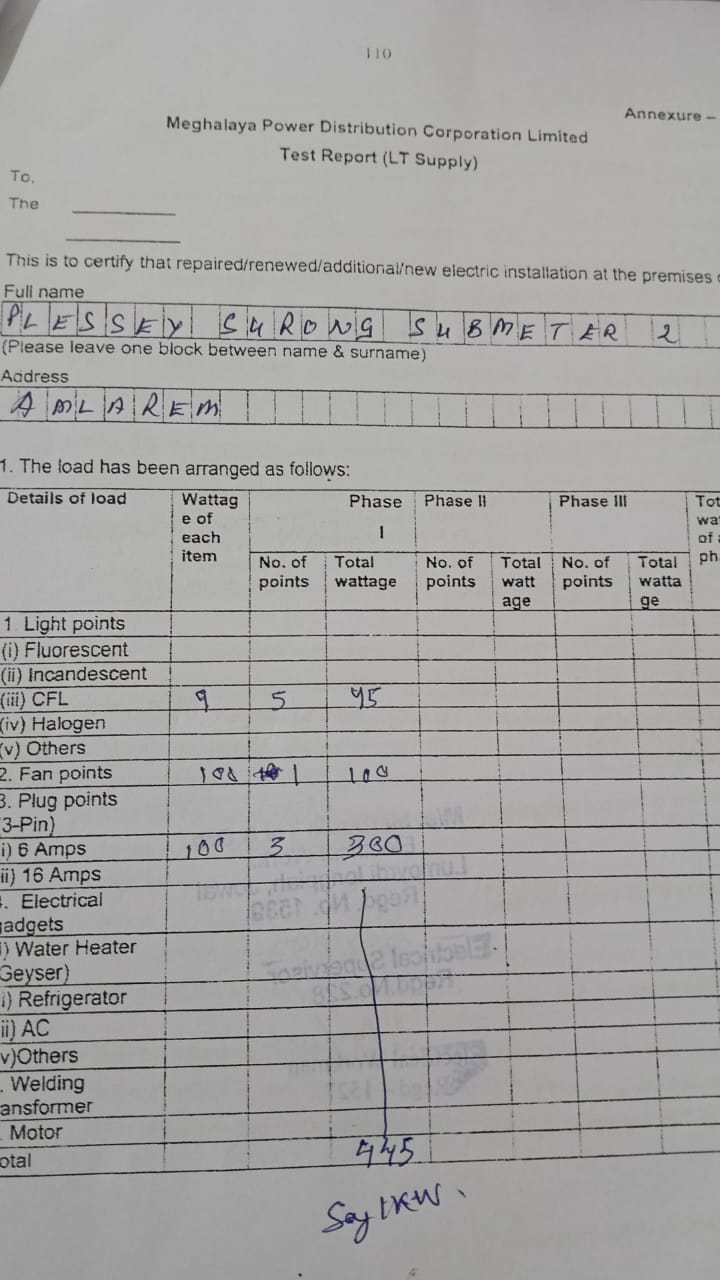 110
Annexure –
Meghalaya Power Distribution Corporation Limited
Test Report (LT Supply)
To,
The
This is to certify that repaired/renewed/additional/new electric installation at the premises
Full name
PLESSEY SURONG SUBMETER 2
(Please leave one block between name & surname)
Address
AMLAREM
1. The load has been arranged as follows:
Details of load Wattag e of each item Phase I Phase II Phase III Tot wa of ph
No. of points Total wattage No. of points Total watt age No. of points Total watta ge
1 Light points
(i) Fluorescent
(ii) Incandescent
(iii) CFL 9 5 45
(iv) Halogen
(v) Others
2. Fan points 100 1 100
3. Plug points
3-Pin)
i) 6 Amps 100 3 300
ii) 16 Amps
. Electrical
gadgets
) Water Heater
Geyser)
i) Refrigerator
ii) AC
v)Others
. Welding
ansformer
. Motor
otal 445
Say 1KW.